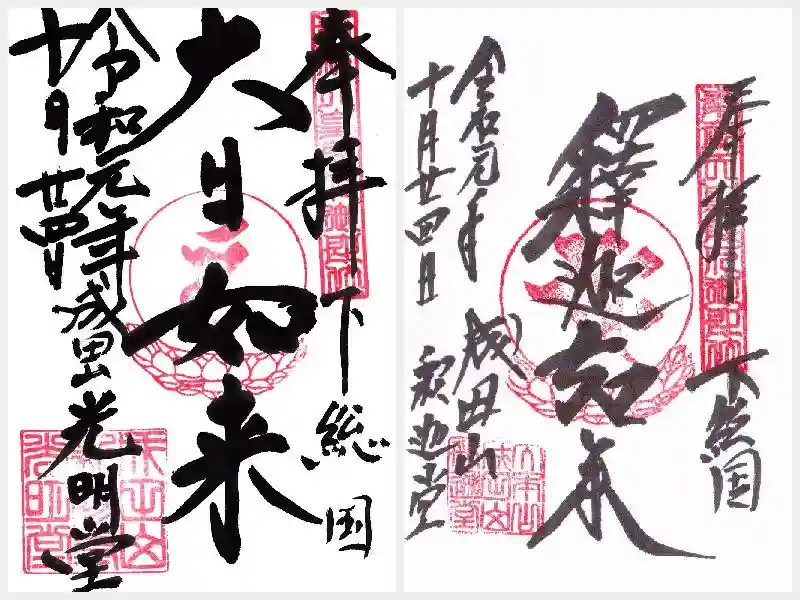 奉拝 下総国
大日如来
令和元年
十月廿四日
成田山 光明堂
奉拝 下総国
釋迦如来
令和元年
十月廿四日
成田山
釈迦堂